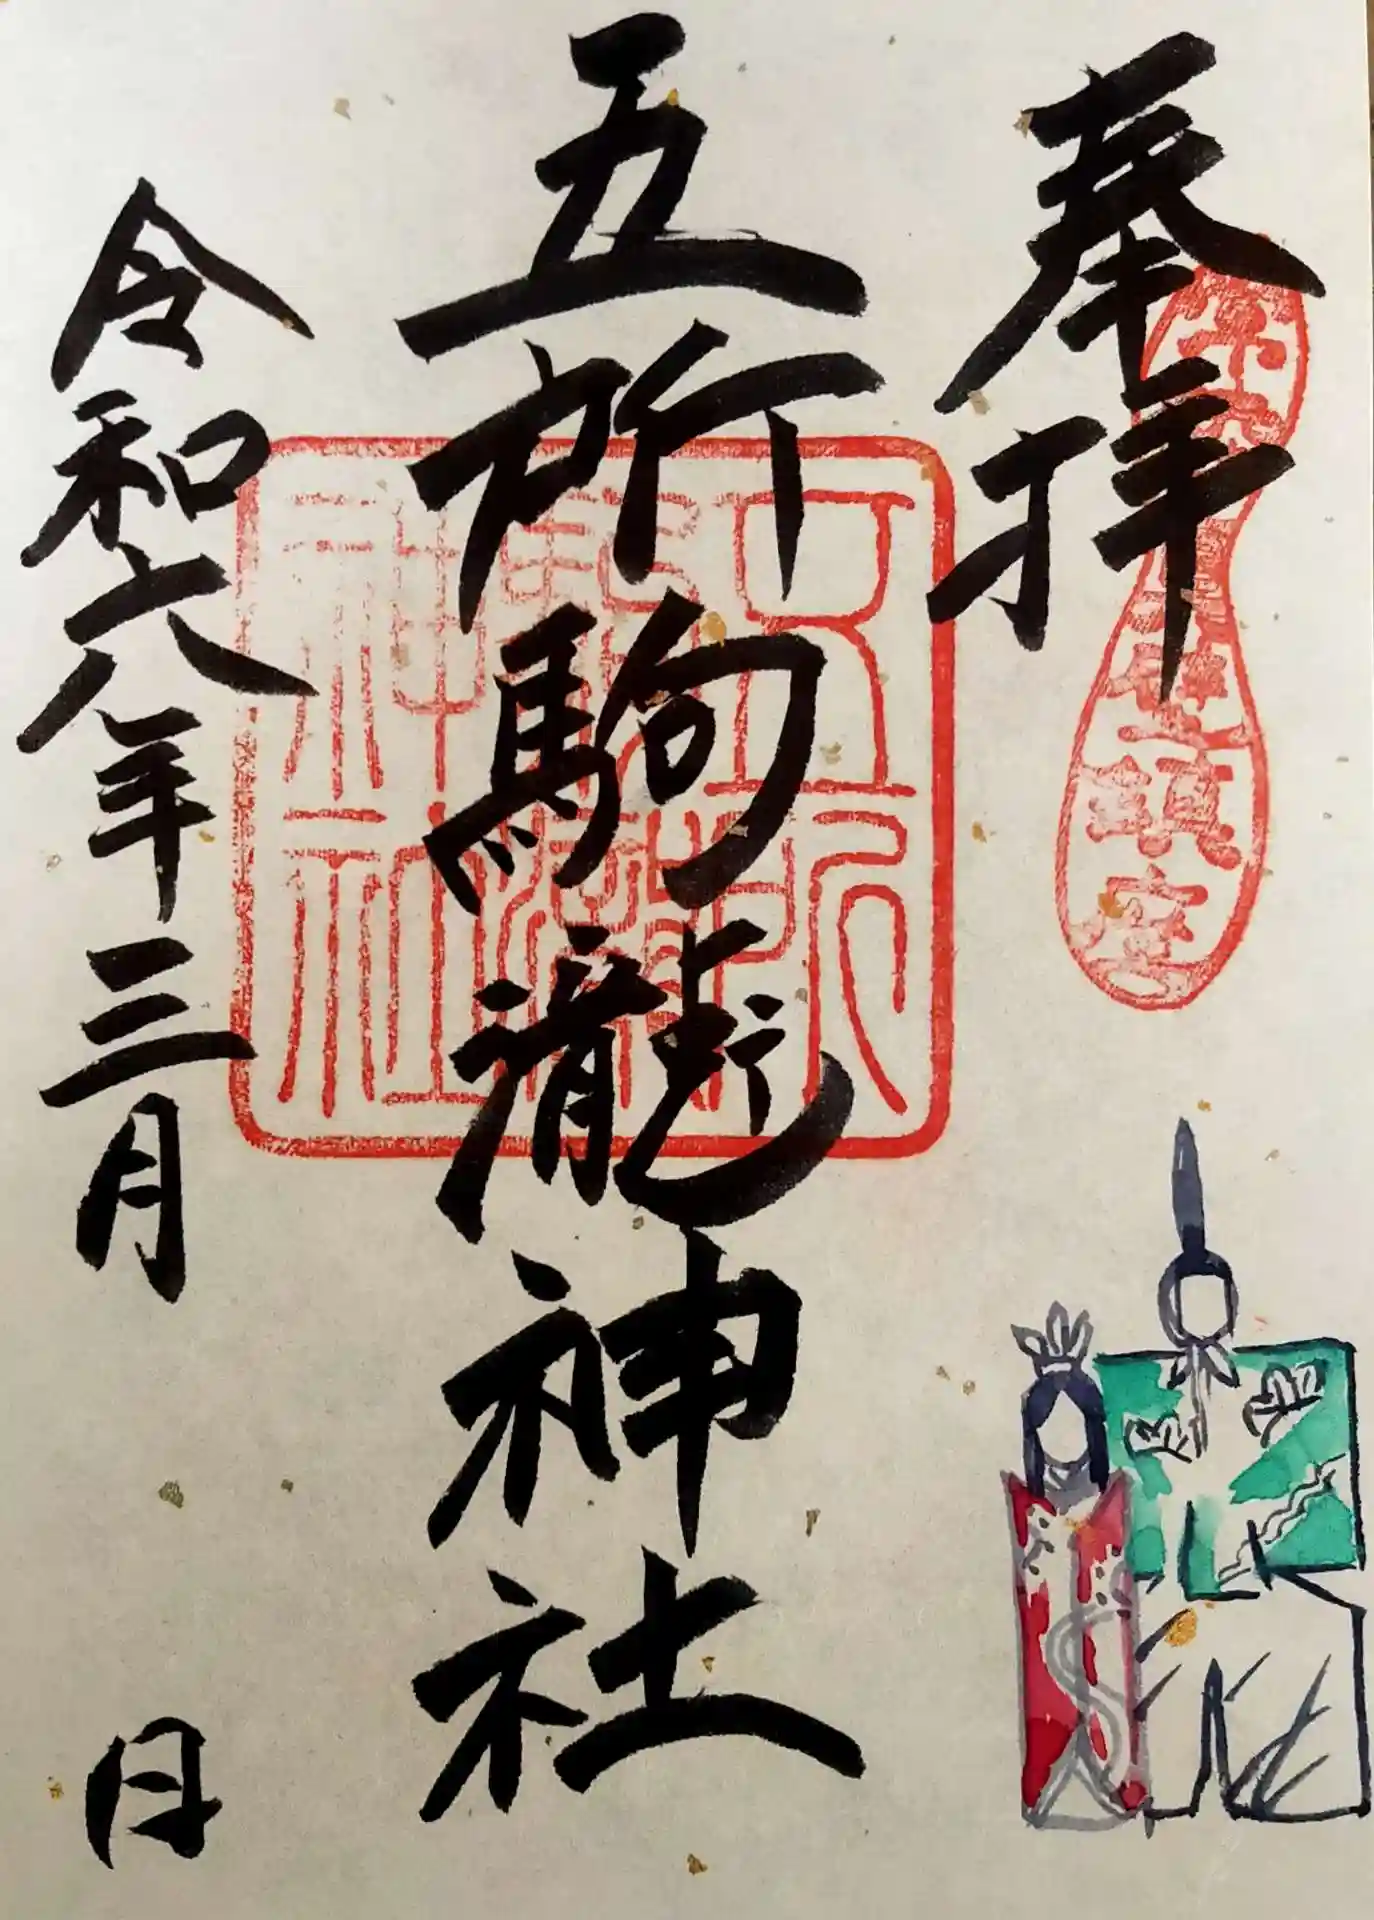 奉拝
鎮座
五所駒瀧神社
五所
駒瀧
神社
令和六年三月 日